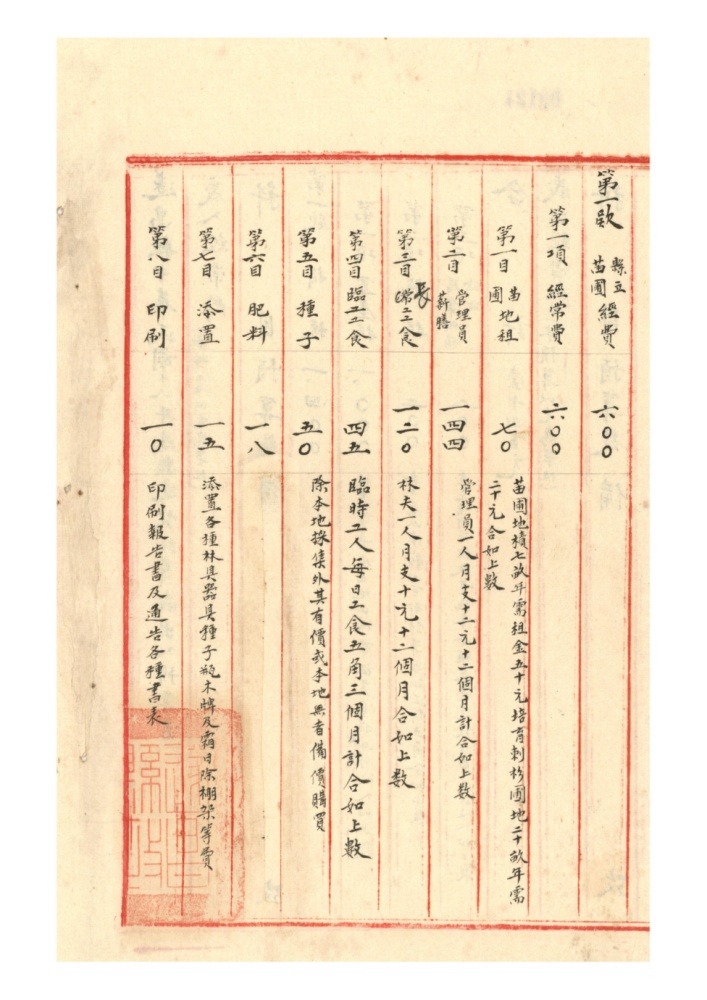 第一款 縣立苗圃經費 六〇〇
第一項 經常費 六〇〇
第一目 苗圃地租 七〇 苗圃地積七畝年需租金五十元培育刺杉圃地二十畝年需
二十元合如上數
第二目 管理員薪膳 一四四 管理員一人月支十二元十二個月計合如上數
第三目 長工工食 一二〇 林夫一人月支十元十二個月合如上數
第四目 臨工工食 四五 臨時工人每日工食五角三個月計合如上數
第五目 種子 五〇 除本地採集外其有價或本地無者備價購買
第六目 肥料 一八
第七目 添置 一五 添置各種林具器具種子瓶木牌及霜日除棚架等費
第八目 印刷 一〇 印刷報告書及通告各種書表